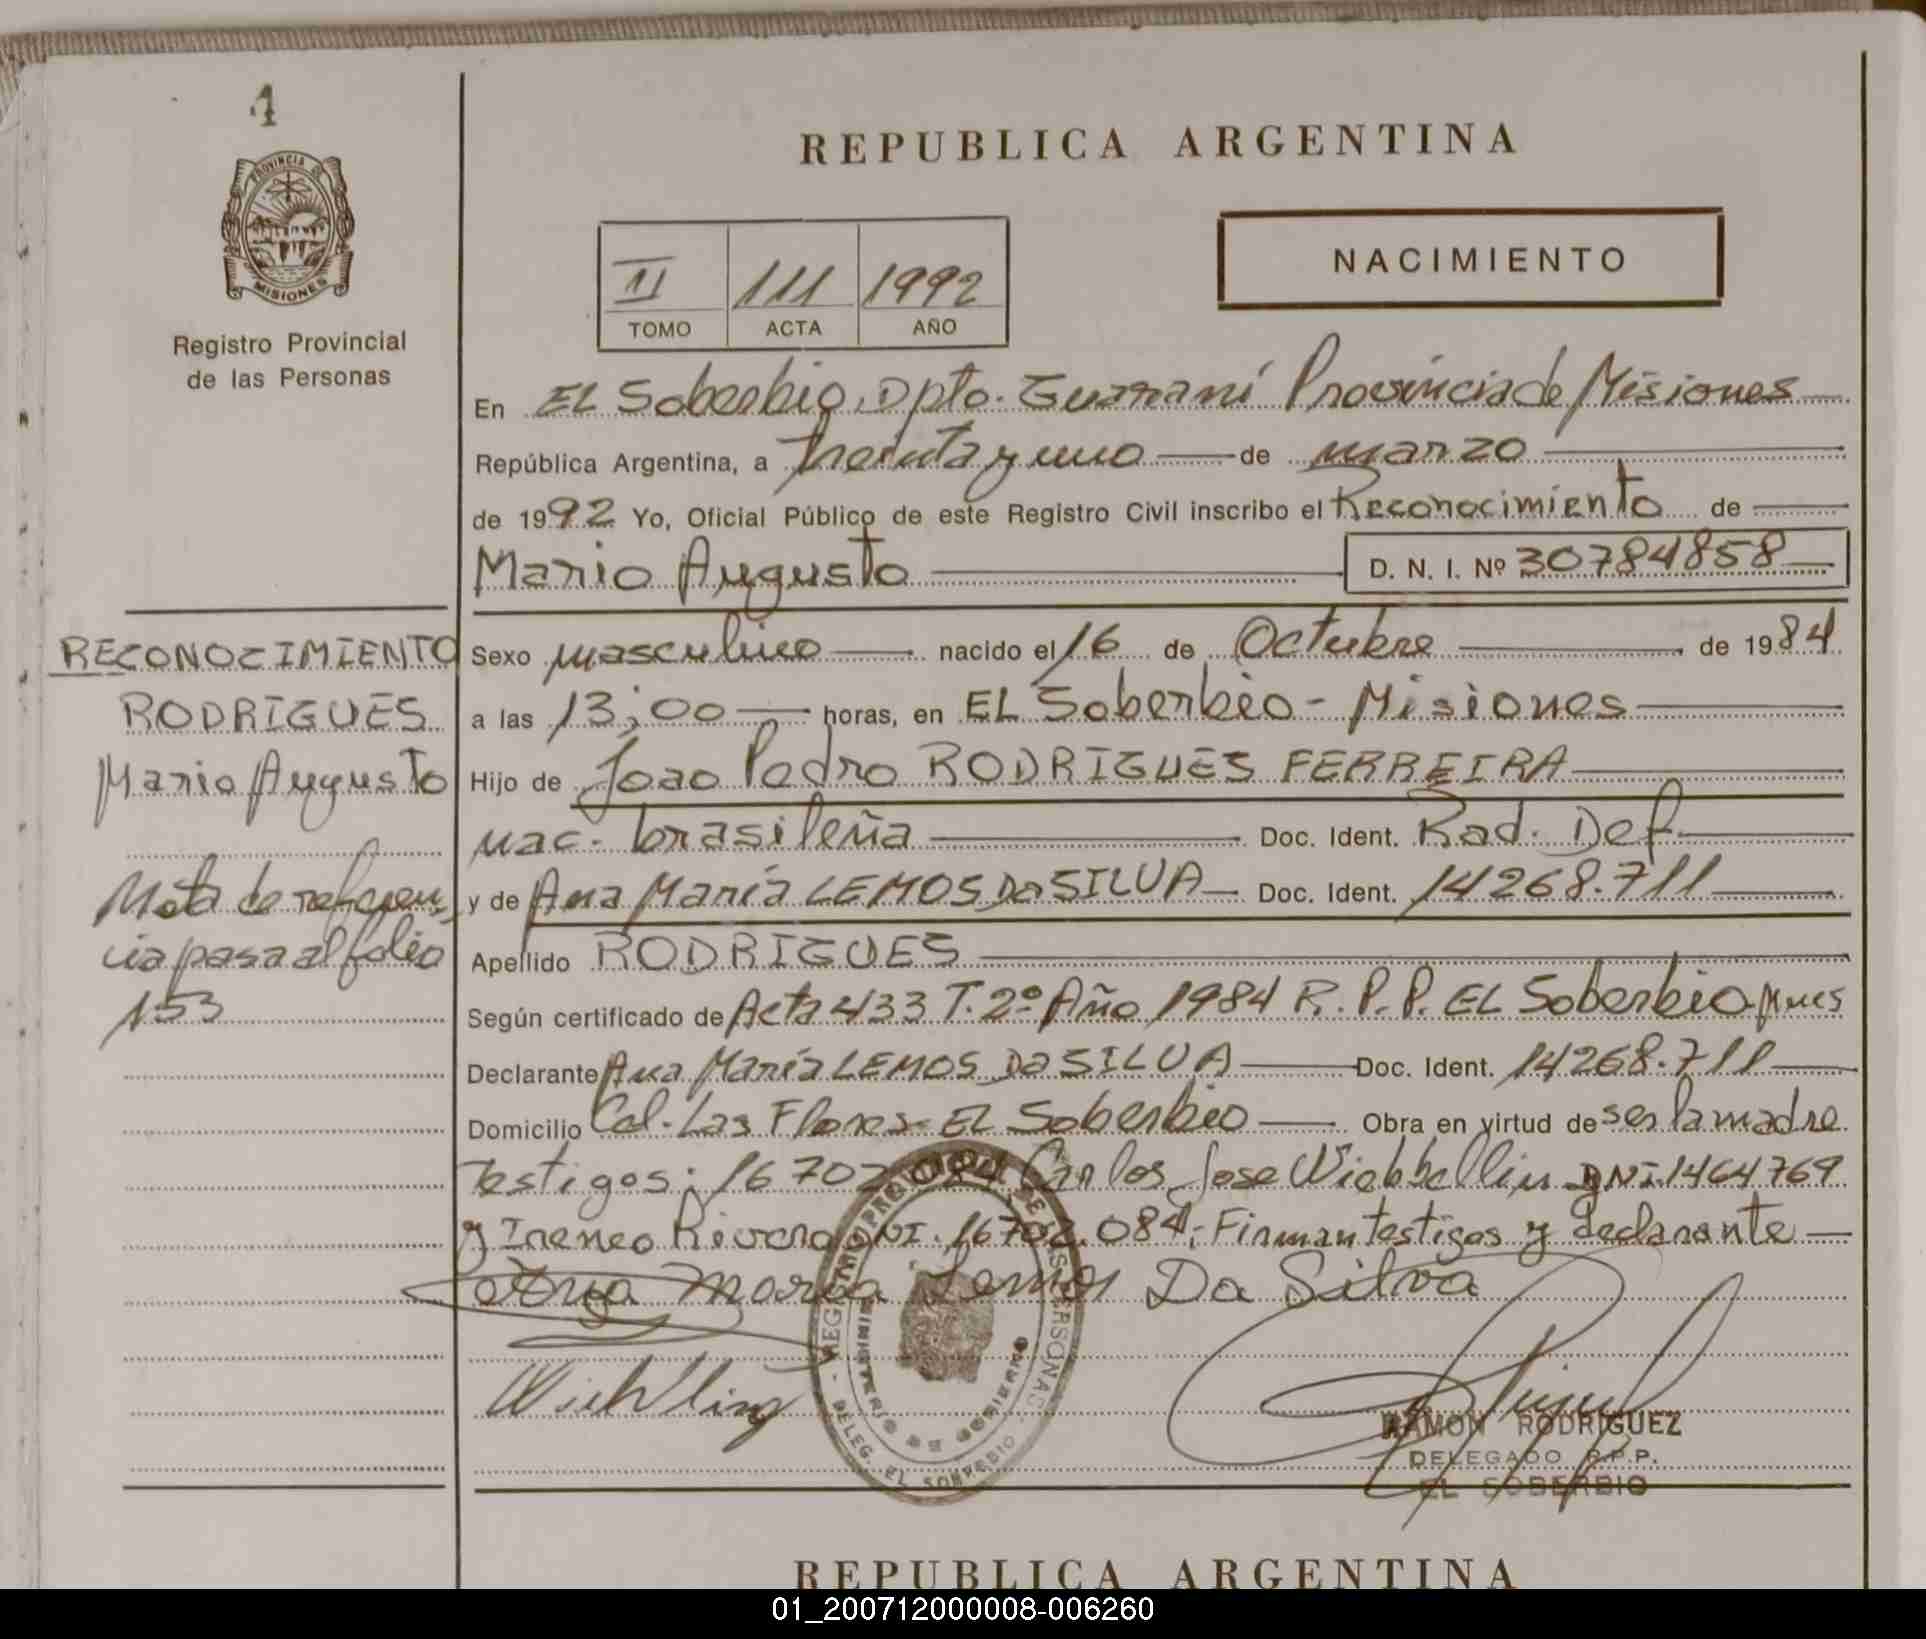 1
PROVINCIA DE
MISIONES
Registro Provincial
de las Personas
REPUBLICA ARGENTINA
II 111 1992
TOMO ACTA AÑO
NACIMIENTO
En EL Soberbio, Dpto. Guaraní Provincia de Misiones
República Argentina, a treinta y uno de marzo
de 1992 Yo, Oficial Público de este Registro Civil inscribo el Reconocimiento de
Mario Augusto D. N. I. Nº 30784858
RECONOCIMIENTO
RODRIGUES
Mario Augusto
Nota de referen-
cia pasa al folio
153
Sexo masculino nacido el 16 de Octubre de 1984
a las 13;00 horas, en EL Soberbio - Misiones
Hijo de Joao Pedro RODRIGUES FERREIRA
nac. brasileña Doc. Ident. Rad. Def
y de Ana María LEMOS Da SILVA Doc. Ident. 14268.711
Apellido RODRIGUES
Según certificado de Acta 433 T. 2º Año 1984 R. P. P. EL Soberbio Mnes
Declarante Ana María LEMOS Da SILVA Doc. Ident. 14268.711
Domicilio Col. Las Flores - EL Soberbio Obra en virtud de ser la madre
Testigos: 16702.084 Carlos Jose DNI. 1464769
y Ireneo Rivero DNI. 16702.084; Firman testigos y declarante
Ana Maria Lemos Da Silva
REGISTRO PROVINCIAL DE LAS PERSONAS
MINISTERIO DE GOBIERNO
DELEG. EL SOBERBIO
RAMON RODRIGUEZ
DELEGADO R.P.P.
EL SOBERBIO
REPUBLICA ARGENTINA
01_200712000008-006260